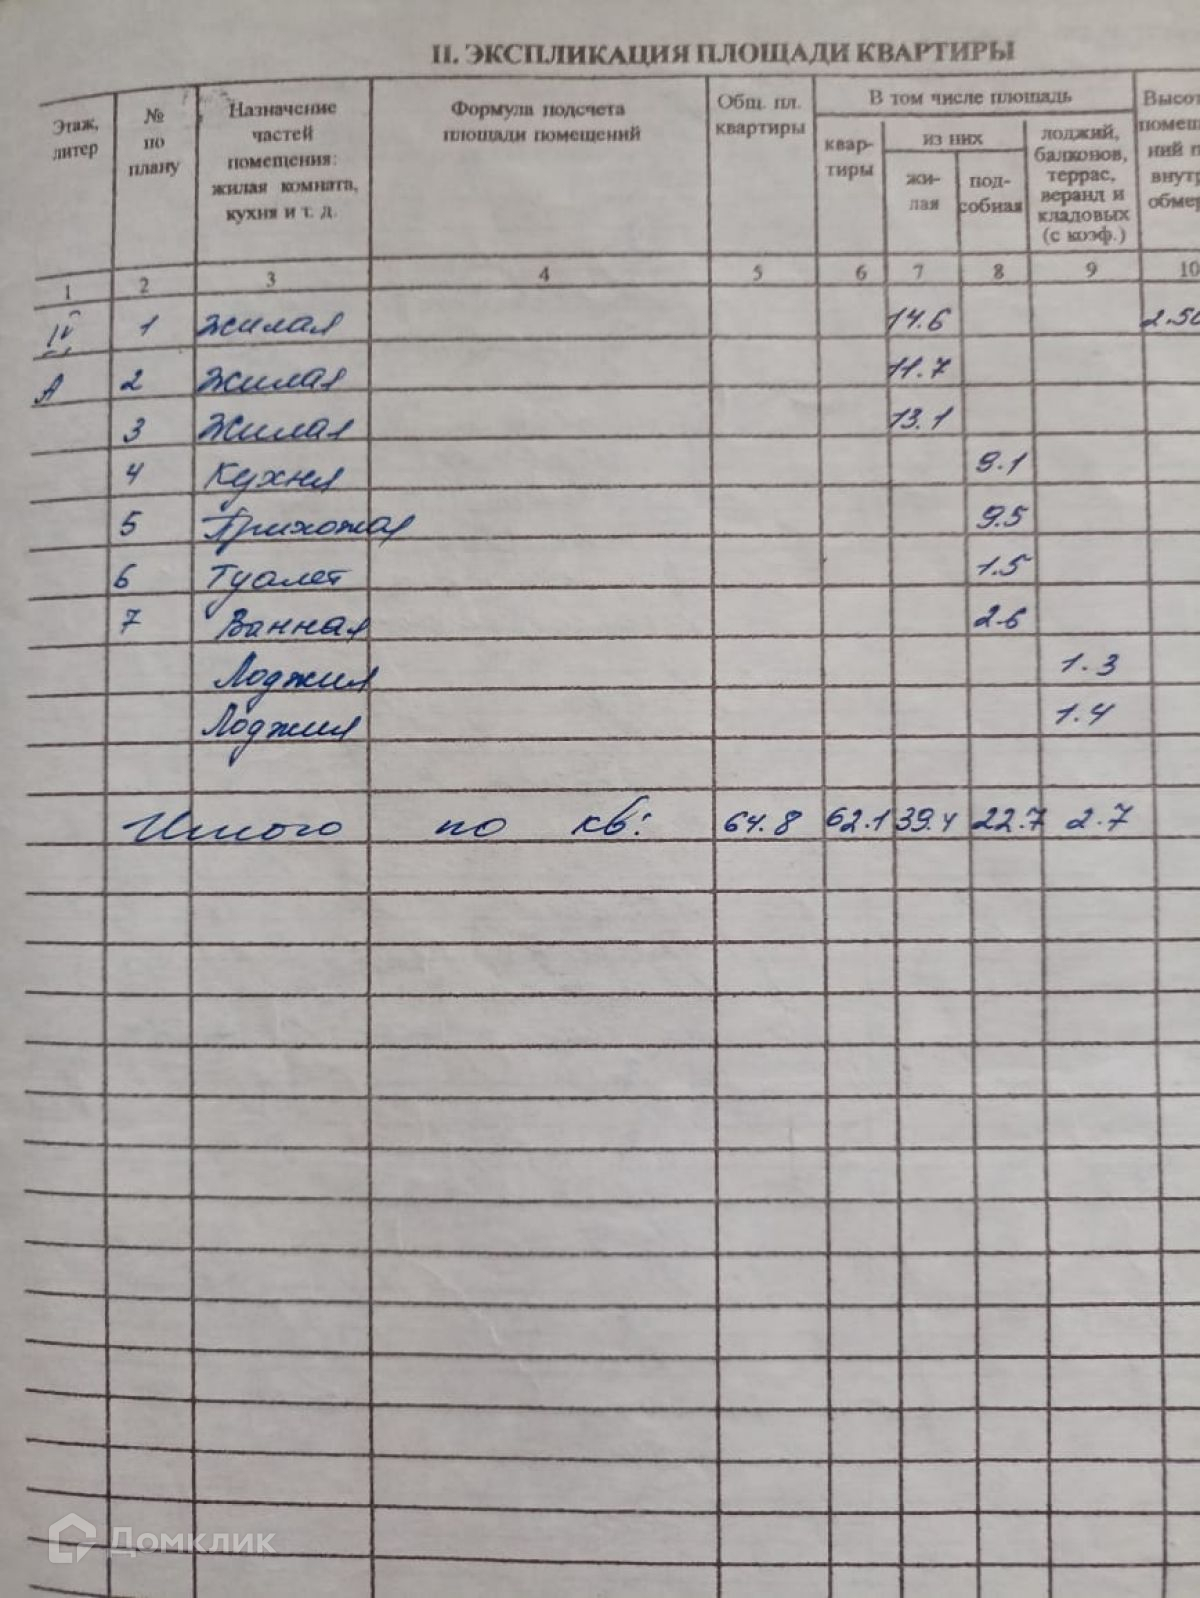 II. ЭКСПЛИКАЦИЯ ПЛОЩАДИ КВАРТИРЫ
Этаж, литер | № по плану | Назначение частей помещения: жилая комната, кухня и т. д. | Формула подсчета площади помещений | Общ. пл. квартиры | В том числе площадь | квартиры | из них | жилая | подсобная | лоджий, балконов, террас, веранд и кладовых (с коэф.)
1 2 3 4 5 6 7 8 9 10
IV 1 Жилая 14.6
А 2 Жилая 11.7
3 Жилая 13.1
4 Кухня 9.1
5 Прихожая 9.5
6 Туалет 1.5
7 Ванная 2.6
Лоджия 1.3
Лоджия 1.4
Итого по кв: 64.8 62.1 39.4 22.7 2.7
Домклик